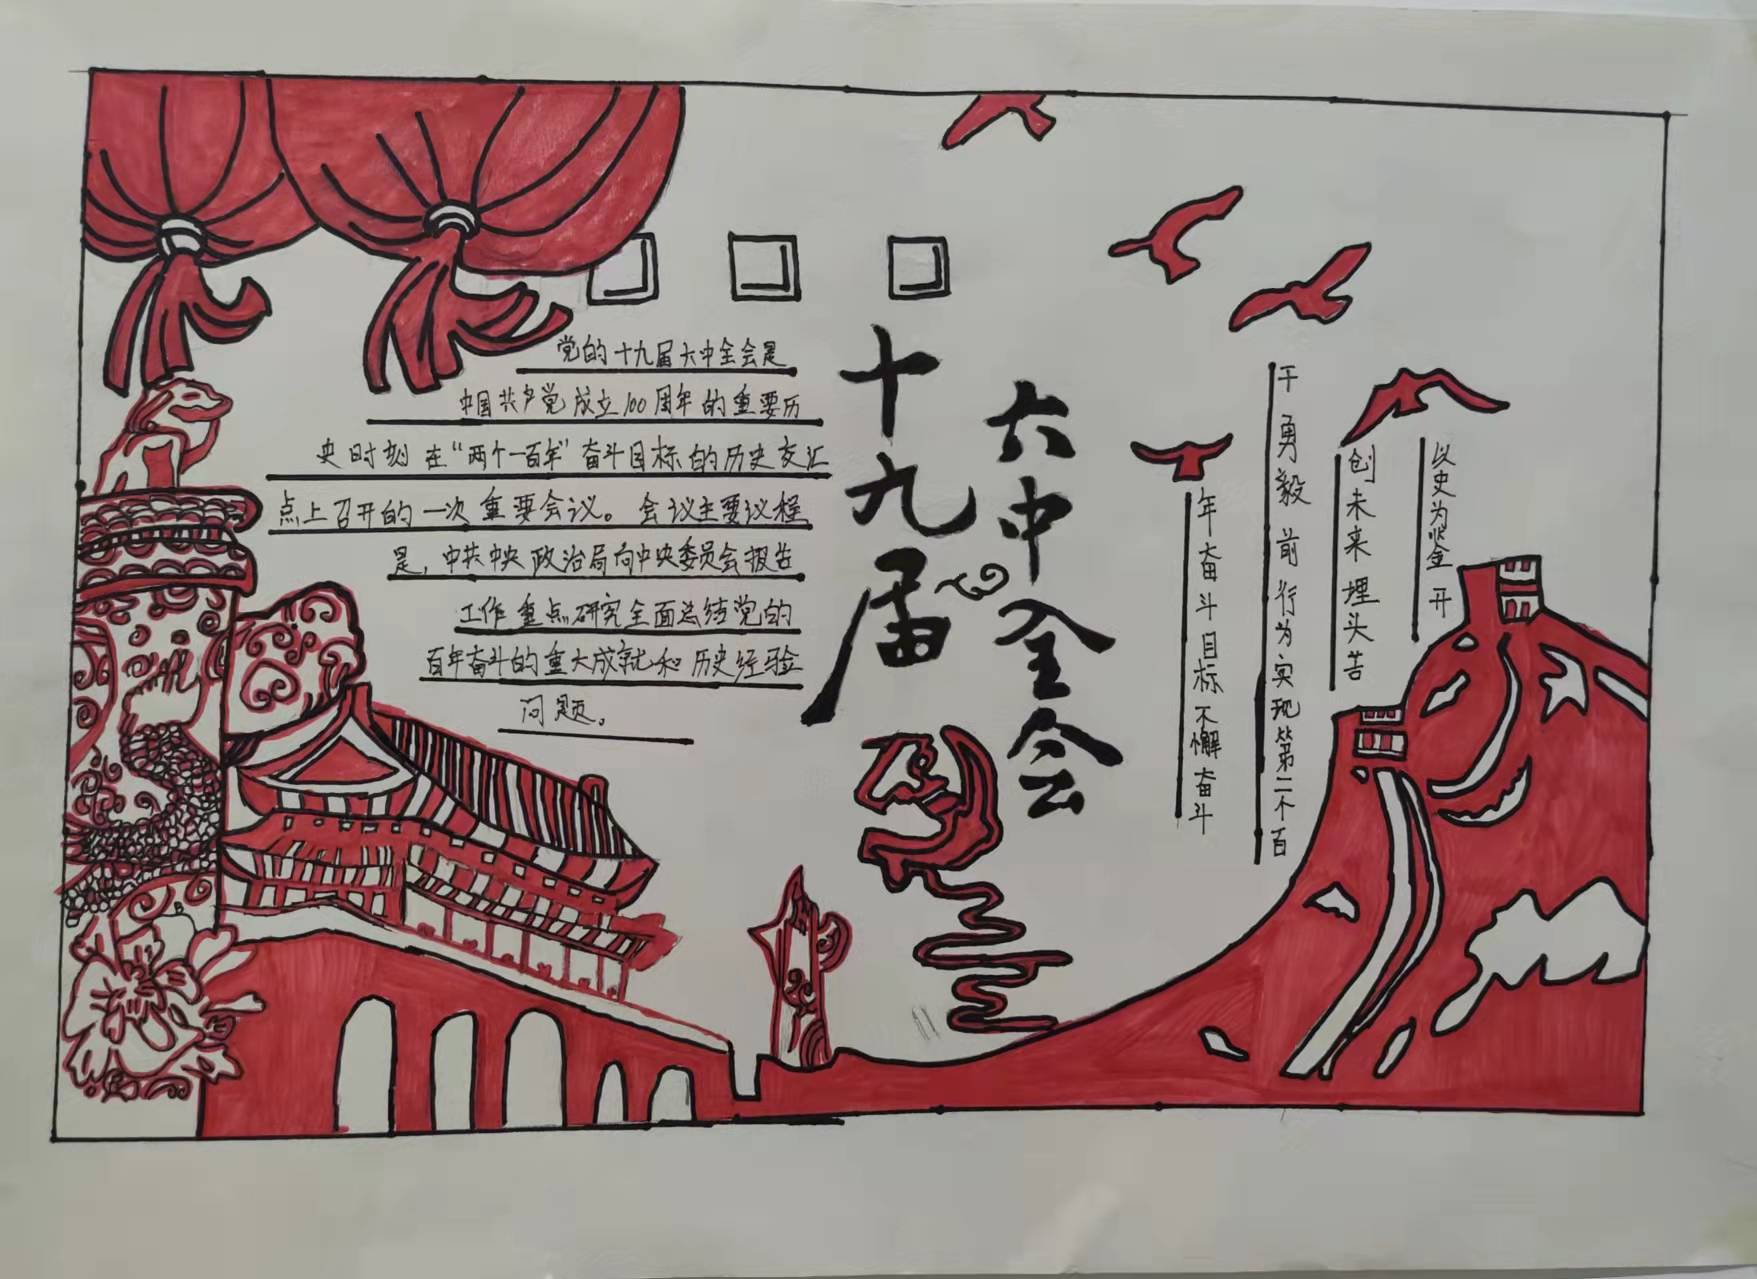 党的十九届六中全会是
中国共产党成立100周年的重要历
史时刻在“两个一百年”奋斗目标的历史交汇
点上召开的一次重要会议。会议主要议程
是,中共中央政治局向中央委员会报告
工作重点研究全面总结党的
百年奋斗的重大成就和历史经验
问题。
十九届
六中全会
以史为鉴开
创未来埋头苦
干勇毅前行为实现第二个百
年奋斗目标不懈奋斗